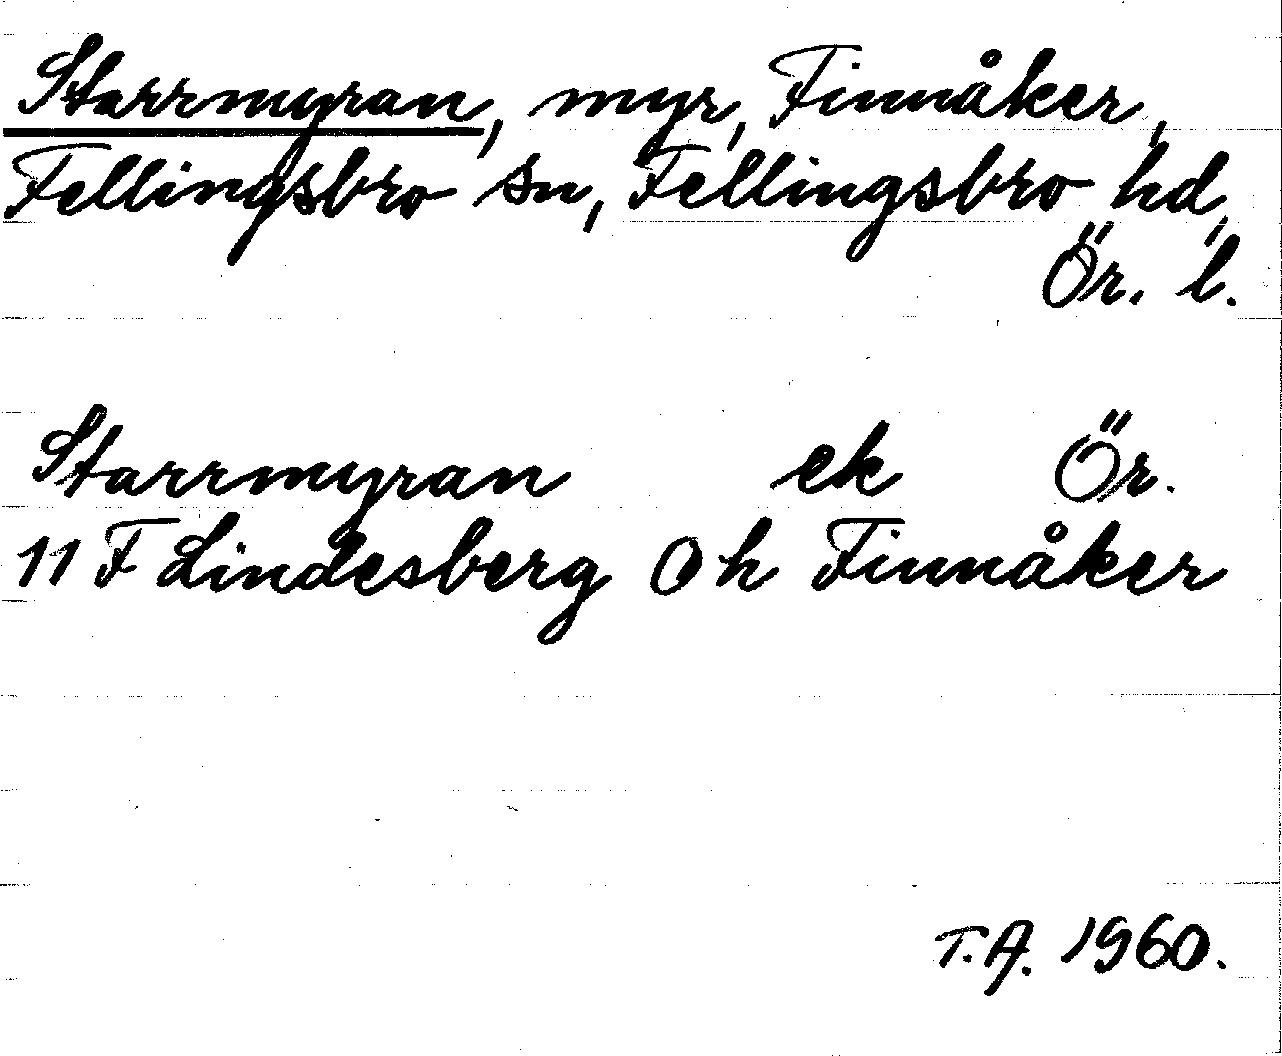 Starrmyran, myr, Finnåker,
Fellingsbro sn, Fellingsbro hd,
Ör. l.
Starrmyran ek Ör.
11 F Lindesberg 0 h Finnåker
T.A. 1960.